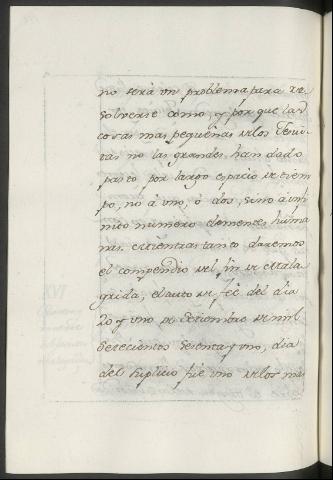 no serà un problema para re
solverse como, y por que las
cosas mas pequeñas de los Jesui
tas no las grandes, han dado
pasto por largo espacio de tiem
po, no à uno, ò dos, sino à infi
nito número de mentes huma
nas. entretanto daremos
el compendio del fin de
el auto de fee del dia
20 y uno de Setiembre de mil
setecientos sesenta y uno, dia
del suplicio fue uno de los mas
XVI